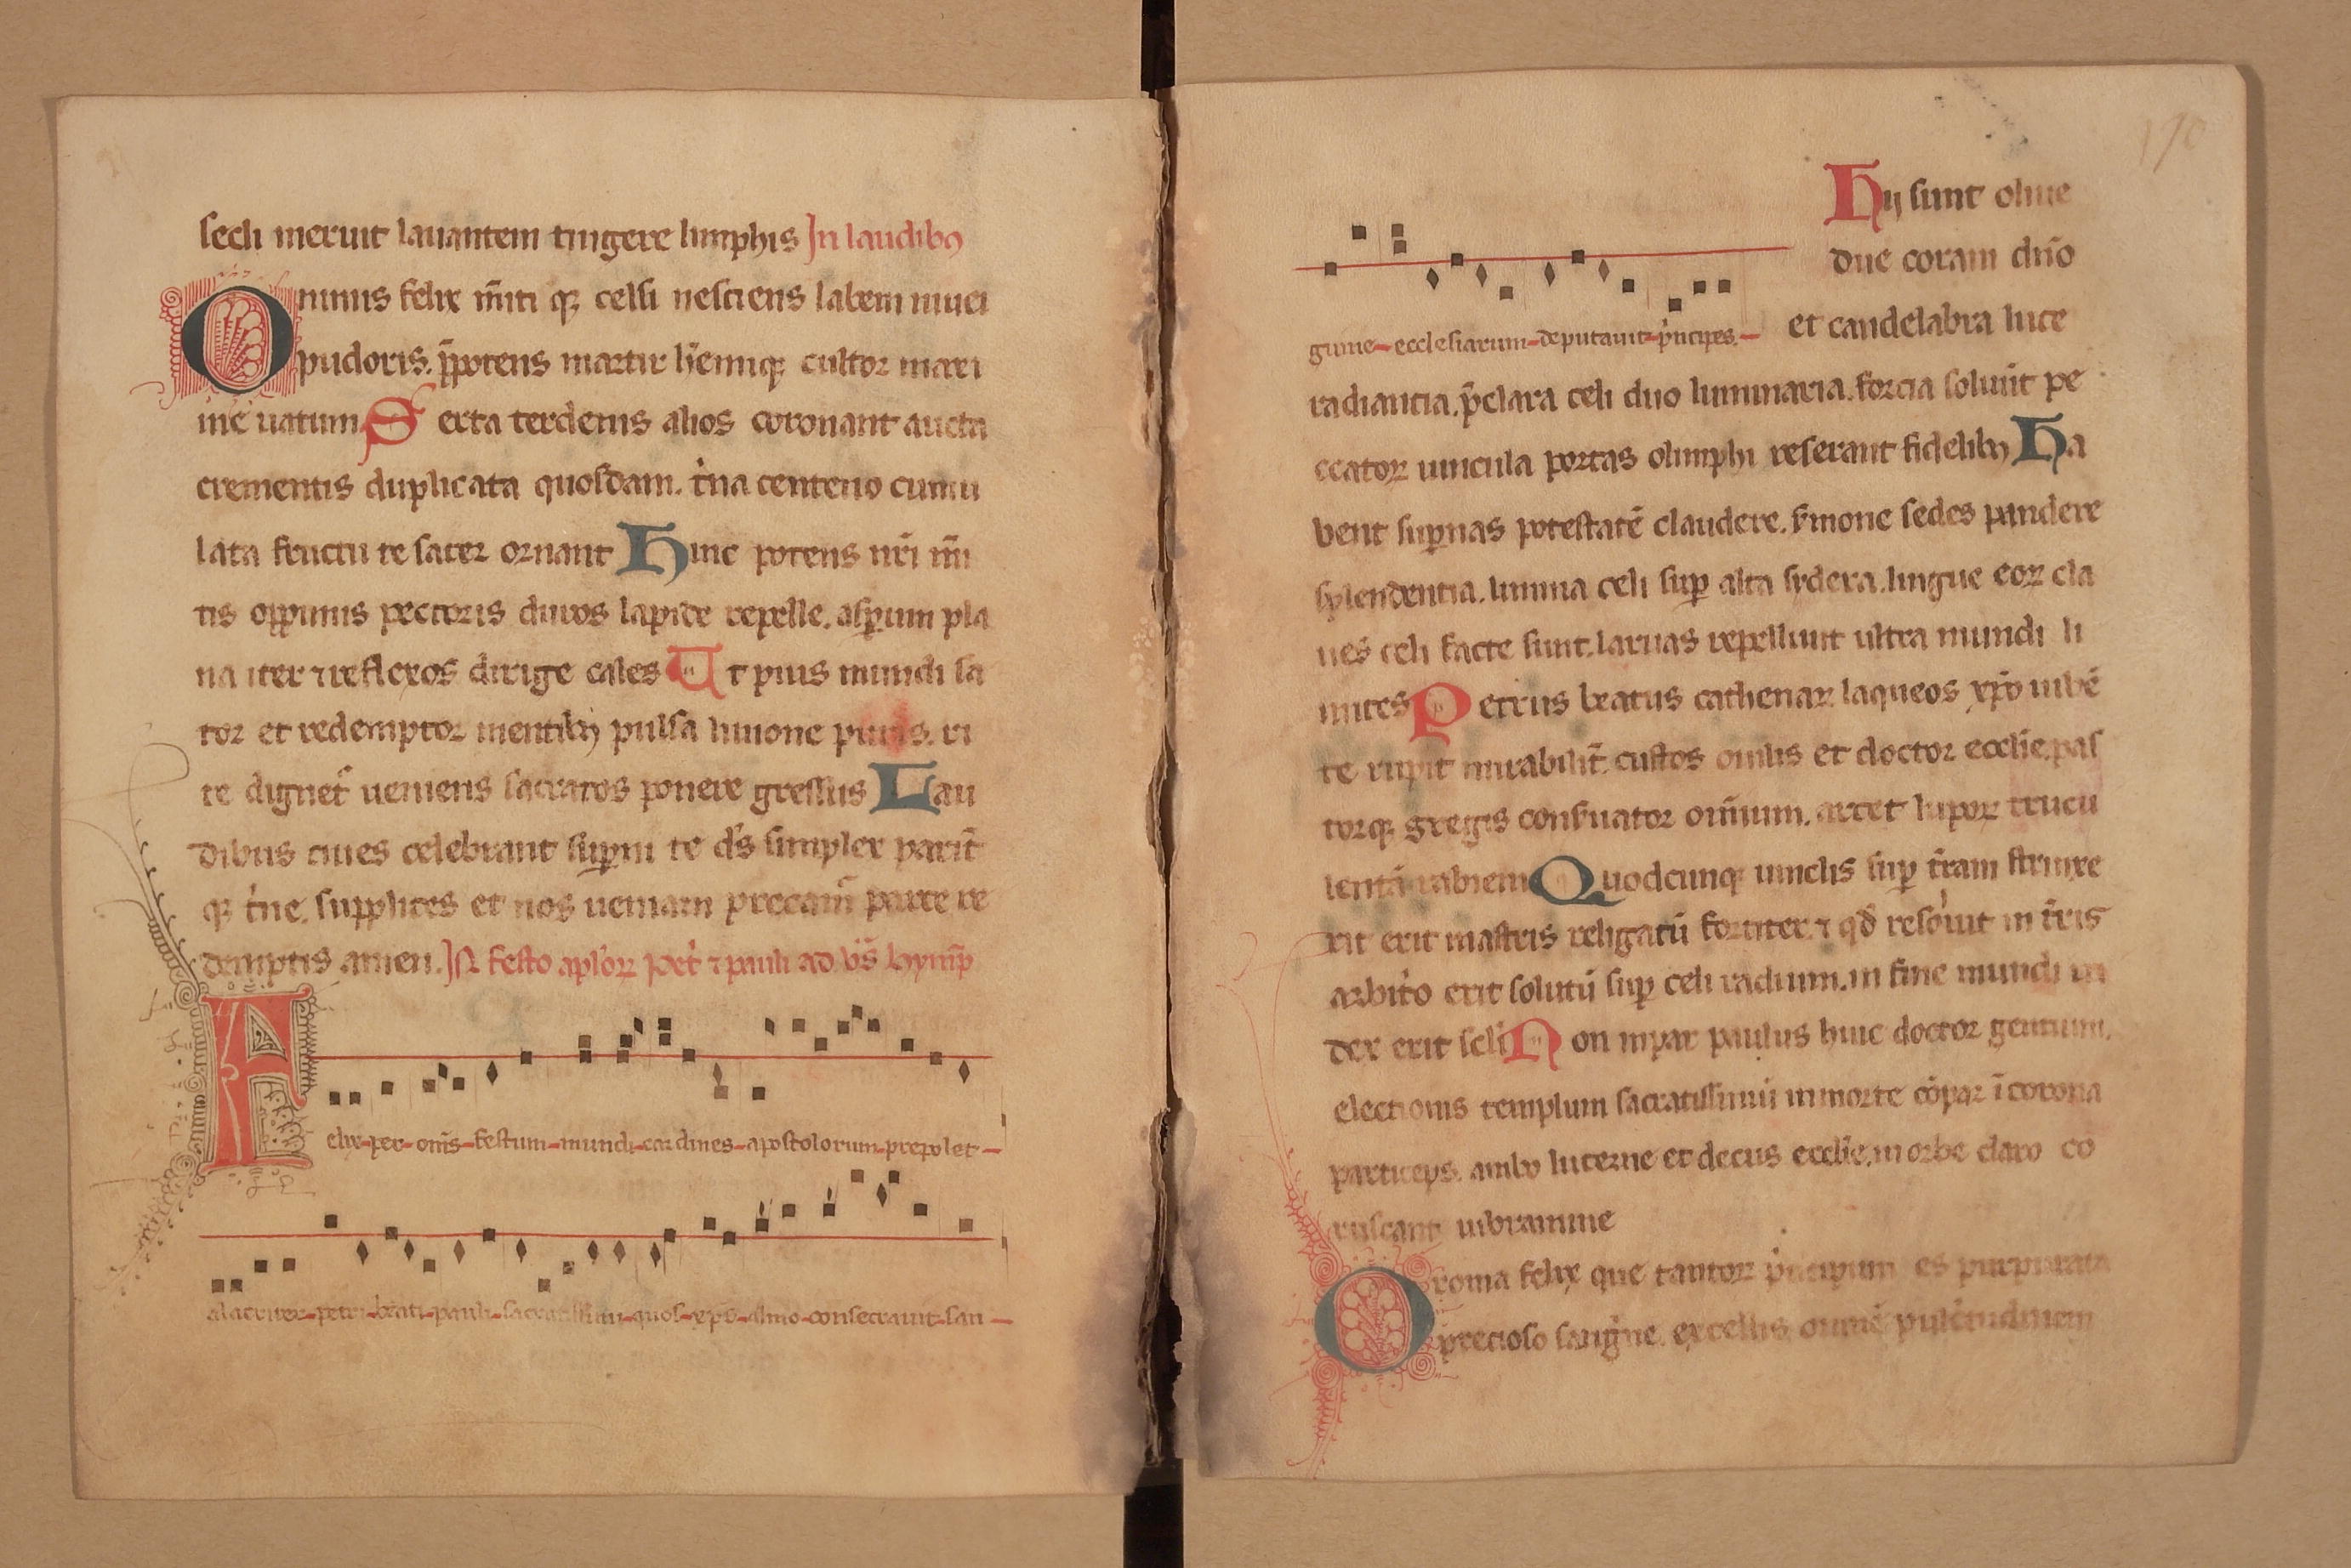 secli meruit lauantem tingere limphis In laudibꝰ
O nimis felix m̄iti qꝫ celsi nesciens labem niuei
pudoris. p̄potens martir h̓emiqꝫ cultor maxi
me uatum Serta terdenis alios coronant aucta
crementis duplicata quosdam. tͥna centeno cumu
lata fructu te sacer ornant Hinc potens nr̄i m̄i
tis oppimis pectoris duros lapide repelle. asꝑum pla
na iter ⁊ reflexos dirige calles Ut pius mundi sa
tor et redemptor mentibꝫ pulsa liuione puris. ri
te dignet᷑ ueniens sacratos ponere gressus Lau
dibus ciues celebrant suꝑni te ds̄ simplex parit̄
qꝫ tͥne. supplices et nos ueniam precam̄ parce re
demptis amen. IN festo aplōꝝ pet̓ ⁊ pauli ad vs̄ hymp̄
Felix per om̄s festum mundi cardines apostolorum prepolet
alacriter petri b̄ati pauli sacratissimi quos xp̄s almo consecrauit san
170
gwine ecclesiarum deputauit pͥncipes.
Hij sunt oliue
due coram dn̄o
et candelabra luce
radiantia. p̄clara celi duo luminaria. forcia soluūt pe
ccatoꝝ uincula portas olimphi reserant fidelibꝫ Ha
bent suꝑnas potestatē claudere. s̓mone sedes pandere
splendentia. limina celi suꝑ alta sydera. lingue eoꝝ cla
ues celi facte sunt. laruas repellunt ultra mundi li
mites Petrus beatus cathenaꝝ laqueos xp̄o iubē
te rupit mirabilit̄. custos ouilis et doctor ecclīe. pas
torqꝫ gregis cons̓uator ouium. arcet lupoꝝ trucu
lentā rabiem Quodcunqꝫ uinclis suꝑ t̄ram strinxe
rit erit in astris religatū fortiter. ⁊ qd̄ resoluit in t̄ris
arbitͥo erit solutū suꝑ celi radium. in fine mundi iu
dex erit scli Non inpar paulus huic doctor gentium.
electionis templum sacratissimū in morte cōpar ī corona
particeps. ambo lucerne et decus ecclīe. in orbe claro co
ruscant uibramine
O roma felix que tantoꝝ pͥncipum es purpurata
precioso sangͥne. excellis omnē pulc̓tudinem